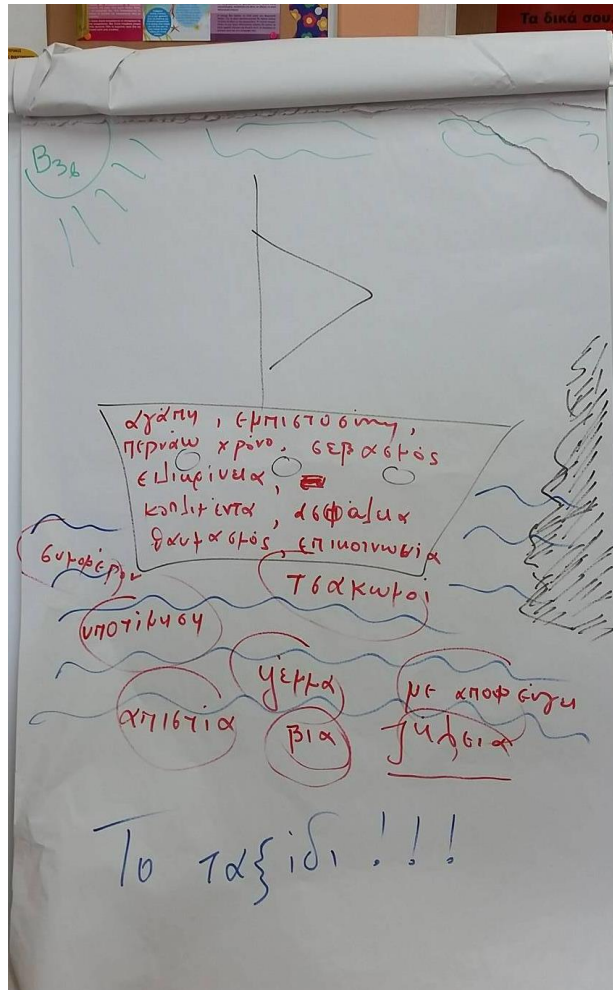 Τα δικά σου
Β3β
αγάπη, εμπιστοσύνη,
περνάω χρόνο, σεβασμός
ειλικρίνεια,
κοπλιμέντα, ασφάλεια
θαυμασμός, επικοινωνία
συμφέρον
τσακωμοί
υποτίμηση
ψέμμα
με αποφεύγει
απιστία
βία
ζήλεια
Το ταξίδι!!!